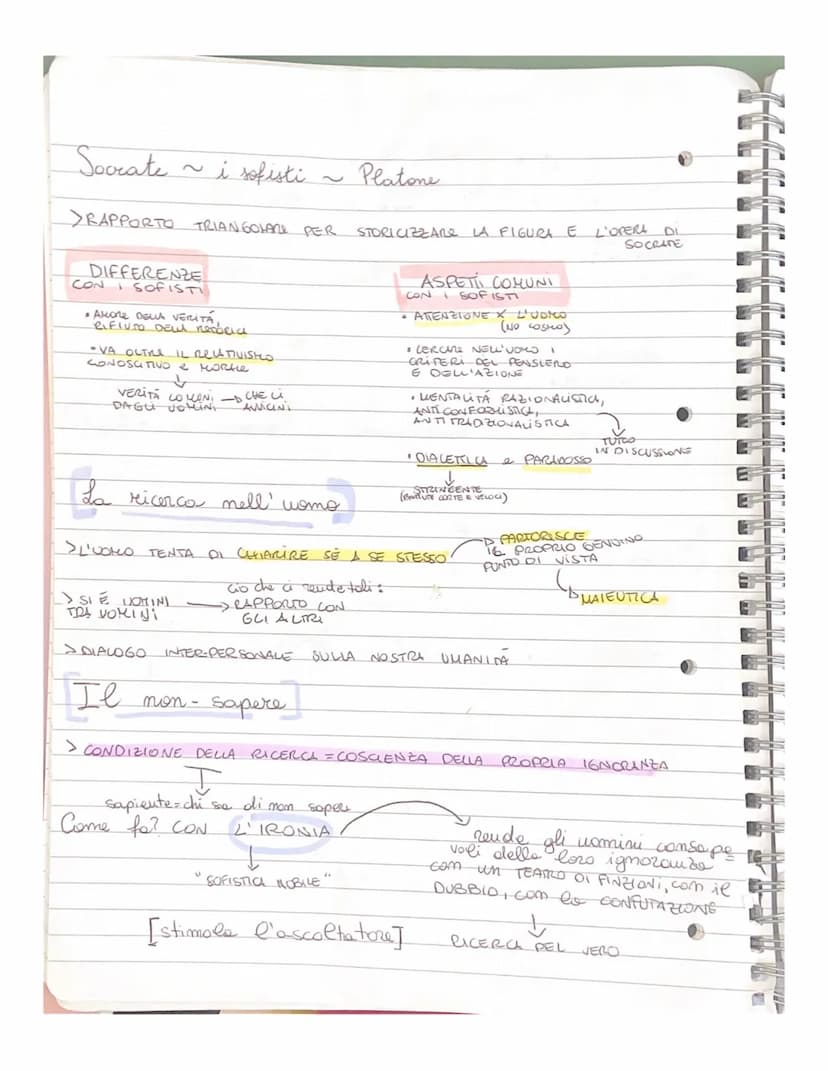 Socrate ~ i sofisti ~ Platone
> RAPPORTO TRIANGOLARE PER STORICIZZARE LA FIGURA E L'OPERA DI
SOCRATE
DIFFERENZE
CON I SOFISTI
• AMORE DELLA VERITÀ,
RIFIUTO DELLA RETORICA
• VA OLTRE IL RELATIVISMO
CONOSCITIVO E MORALE
↓
VERITÀ COMUNI → CHE CI
DAGLI UOMINI, AVVICINI
ASPETTI COMUNI
CON I SOFISTI
• ATTENZIONE X L'UOMO
(NO COSMO)
• CERCARE NELL'UOMO I
CRITERI DEL PENSIERO
E DELL'AZIONE
• MENTALITÁ RAZIONALISTICA,
ANTICONFORMISTICA,
ANTITRADIZIONALISTICA
TUTTO
IN DISCUSSIONE
• DIALETTICA e PARADOSSO
↓
STRINGENTE
(BATTUTE CORTE E VELOCI)
[La ricerca nell'uomo]
> L'UOMO TENTA DI CHIARIRE SÈ A SE STESSO
→ PARTORISCE
IL PROPRIO GENUINO
PUNTO DI VISTA
→ MAIEUTICA
ciò che ci rende tali:
> SI È UOMINI → RAPPORTO CON
TRA UOMINI GLI ALTRI
> DIALOGO INTER-PERSONALE SULLA NOSTRA UMANITÀ
[Il non-sapere]
> CONDIZIONE DELLA RICERCA = COSCIENZA DELLA PROPRIA IGNORANZA
↓
sapiente = chi sa di non sapere
Come fa? CON L'IRONIA
↓
"SOFISTICA NOBILE"
[stimola l'ascoltatore]
rende gli uomini consape=
voli della loro ignoranza
con un TEATRO DI FINZIONI, con il
DUBBIO, con la CONFUTAZIONE
↓
RICERCA DEL VERO